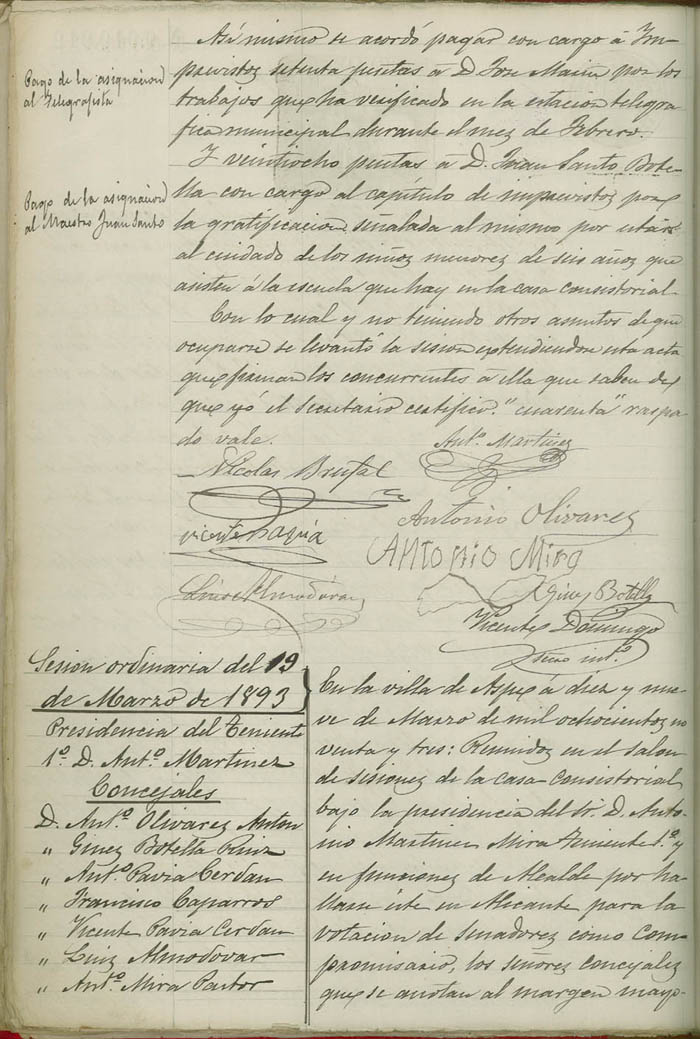 Asi mismo se acordó pagar con cargo á Im-
Pago de la asignacion
al Telegrafista
previstos setenta pesetas á D. Jose Maciá por los
trabajos que ha verificado en la estacion telegra-
fica municipal durante el mes de Febrero.
Y veintiocho pesetas á D. Juan Santo Bote-
Pago de la asignacion
al Maestro Juan Santo
lla con cargo al capítulo de imprevistos por
la gratificacion señalada al mismo por estár
al cuidado de los niños menores de seis años que
asisten á la escuela que hay en la casa consistorial.
Con lo cual y no teniendo otros asuntos de que
ocuparse se levantó la sesion extendiendose esta acta
que firman los concurrentes á ella que saben de
que yó el Secretario certifico. "cuarenta" raspa-
do vale.
Antº Martinez
Nicolas Brufal
Antonio Olivarez
Vicente Pavia
ANTONIO Mira
Luis Almodóvar
Gines Botella
Vicente Domingo
Srio intº
Sesion ordinaria del 19
de Marzo de 1893
Presidencia del Teniente
1º D. Antº Martinez
Concejales
D. Antº Olivarez Anton
" Ginez Botella Ruiz
" Antº Pavia Cerdan
" Francisco Caparros
" Vicente Pavia Cerdan
" Luiz Almodovar
" Antº Mira Pastor
En la villa de Aspe á diez y nue-
ve de Marzo de mil ochocientos no-
venta y tres: Reunidos en el salon
de sesiones de la casa consistorial
bajo la presidencia del Sr. D. Anto-
nio Martinez Mira Teniente 1º y
en funciones de Alcalde por ha-
llarse éste en Alicante para la
votacion de Senadores como com-
promisario, los señores concejales
que se anotan al margen mayo-